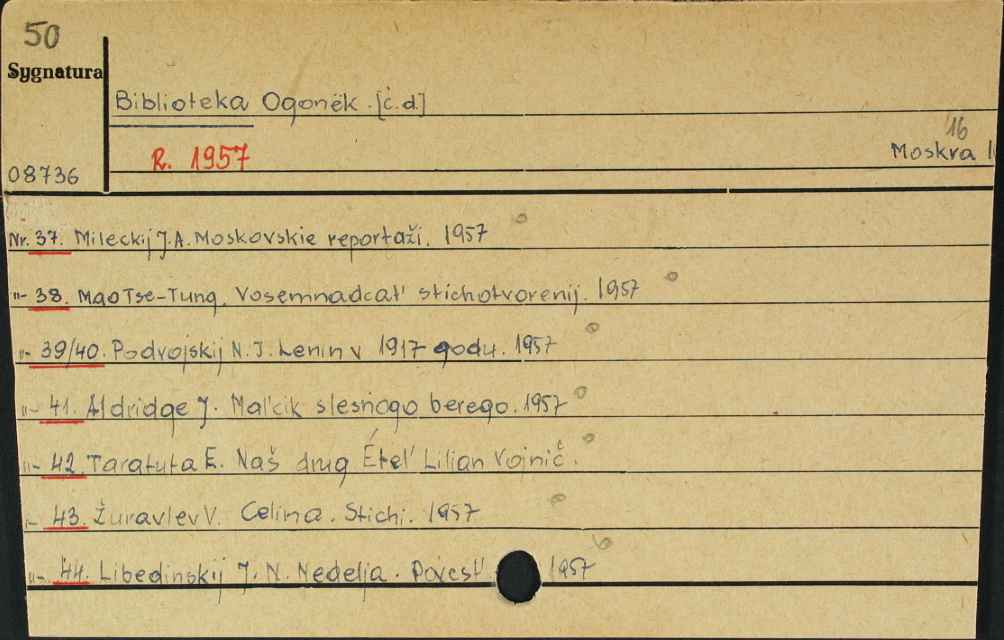 50
Sygnatura
Biblioteka Ogonëk. [c.d.]
16
R. 1957
Moskva
08736
Nr. 37. Mileckij J.A. Moskovskie reportaži. 1957
"- 38. Mao Tse-Tung. Vosemnadcat' stichotvorenij. 1957
"- 39/40. Podvojskij N. J. Lenin v 1917 godu. 1957
"- 41. Aldridge J. Mal'cik slesnogo berego. 1957
"- 42. Taratuta E. Naš drug Étel' Lilian Vojnič.
"- 43. Žuravlev V. Celina. Stichi. 1957
"- 44. Libedinskij J. N. Nedelja. Povest' 1957